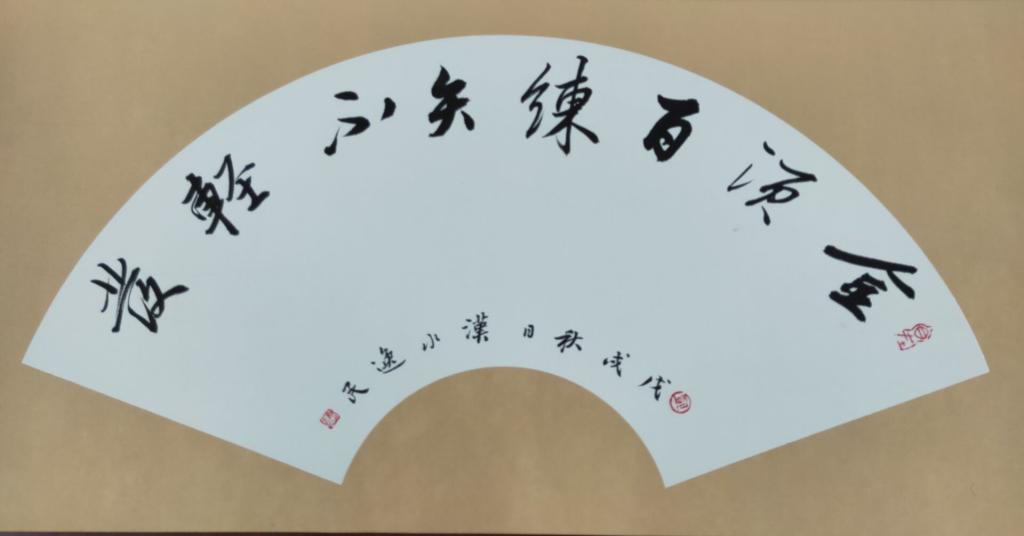 金須百練矢不輕發
戊戌秋日漢水逸民